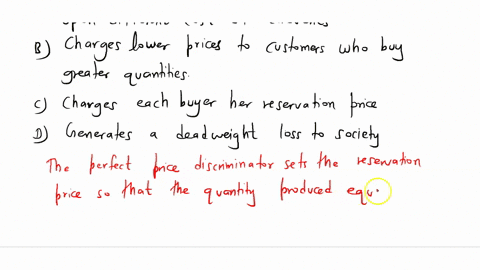 B) Charges lower prices to customers who buy
greater quantities.
C) Charges each buyer her reservation price
D) Generates a deadweight loss to society
The perfect price discriminator sets the reservation
price so that the quantity produced equ